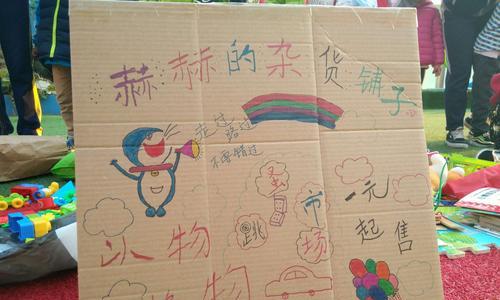 赫赫的杂货铺子
走过路过
不要错过
跳蚤市场
一元
起售
以物
物